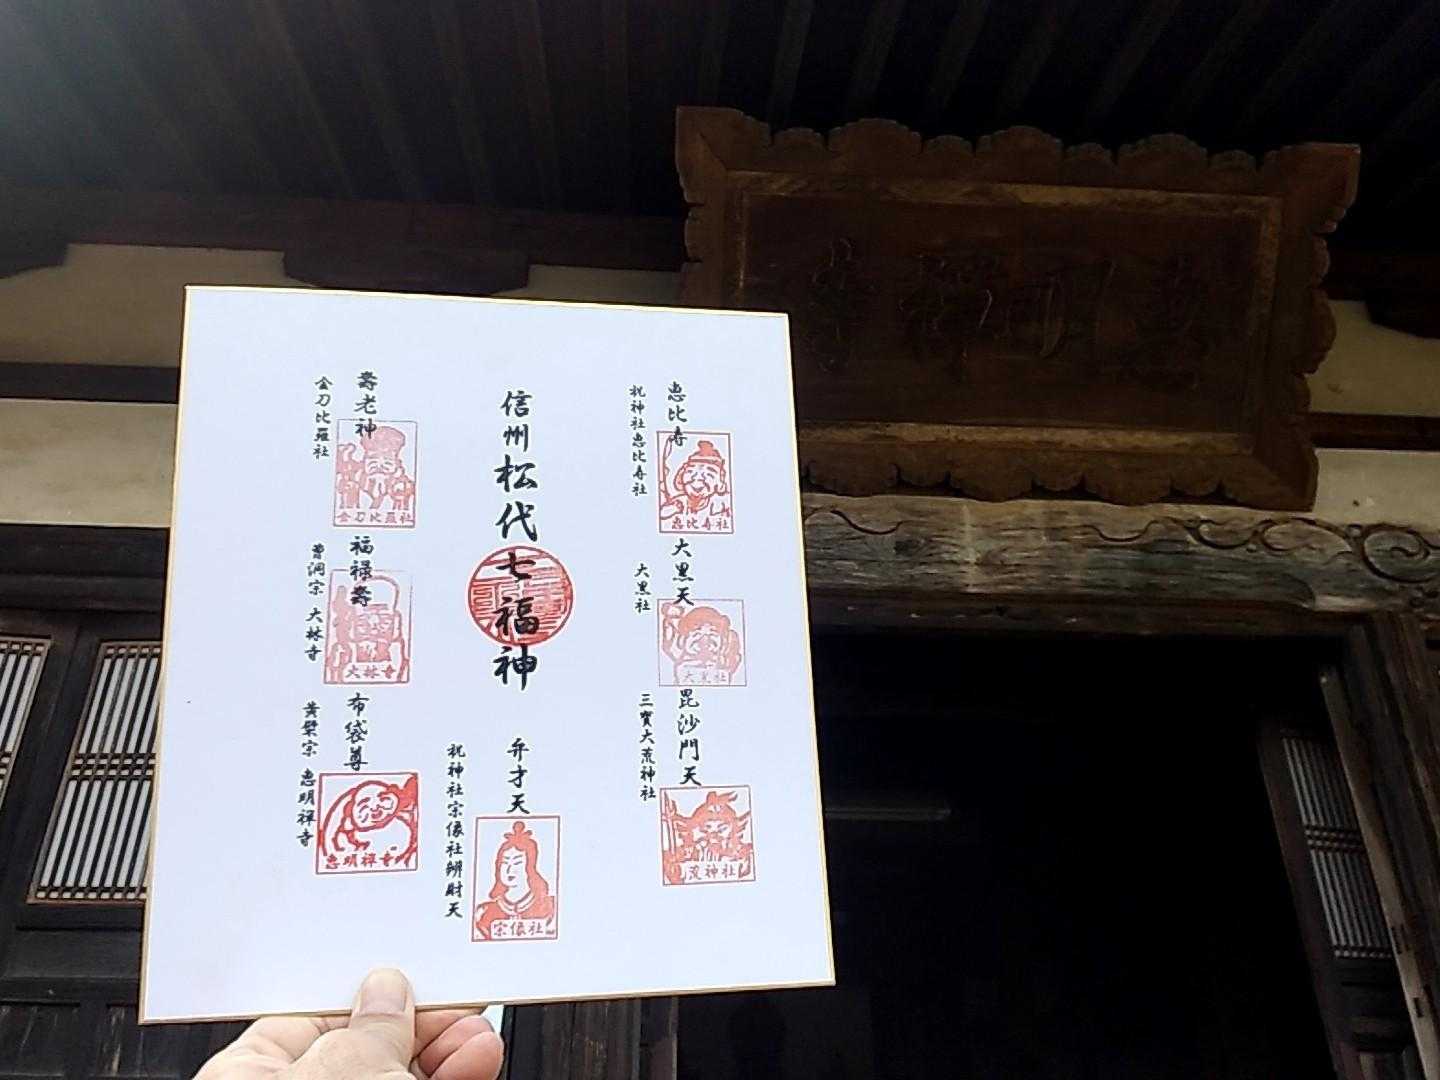 恵比寿
祝神社恵比寿社
恵比寿社
大黒天
大黒社
大黒社
毘沙門天
三寳大荒神社
荒神社
信州松代七福神
弁才天
祝神社宗像社辨財天
宗像社
壽老神
金刀比羅社
金刀比羅社
福禄壽
曹洞宗 大林寺
大林寺
布袋尊
黄檗宗 恵明禅寺
恵明禅寺
恵明禪寺